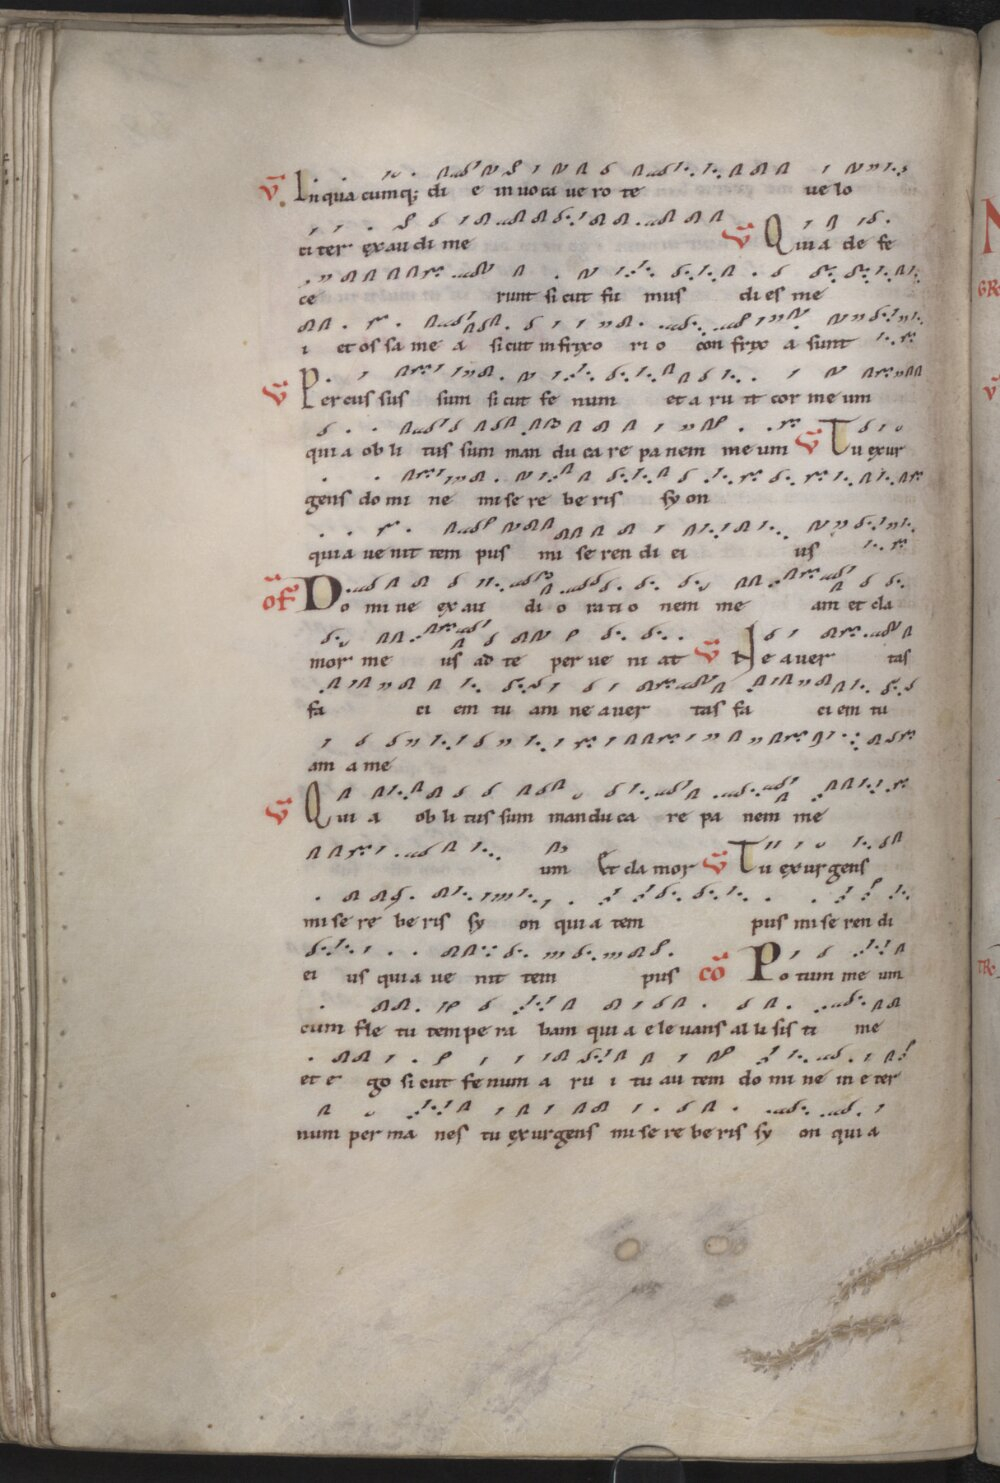 v̄. In quacumq; di e in uoca ue ro te ue lo
ci ter exau di me v̄ Qui a de fe
ce runt si cut fu mus di es me
i et os sa me a si cut in frixo ri o con frix a sunt
v̄ Per cus sus sum si cut fe num et a ru it cor me um
qui a ob li tus sum man du ca re pa nem me um v̄ Tu exur
gens do mi ne mi se re be ris sy on
qui a ue nit tem pus mi se ren di ei us
of̄ Do mi ne ex au di o ra ti o nem me am et cla
mor me us ad te per ue ni at v̄ Ne auer tas
fa ci em tu am ne auer tas fa ci em tu
am a me
v̄ Qui a ob li tus sum manduca re pa nem me
um Et cla mor v̄ Tu exurgens
mi se re be ris sy on qui a tem pus mi se ren di
ei us qui a ue nit tem pus cō Po tum me um
cum fle tu tem pe ra bam qui a e le uans al li sis ti me
et e go si cut fe num a ru i tu au tem do mi ne in e ter
num per ma nes tu exurgens mi se re be ris sy on qui a
GR
v̄
TR